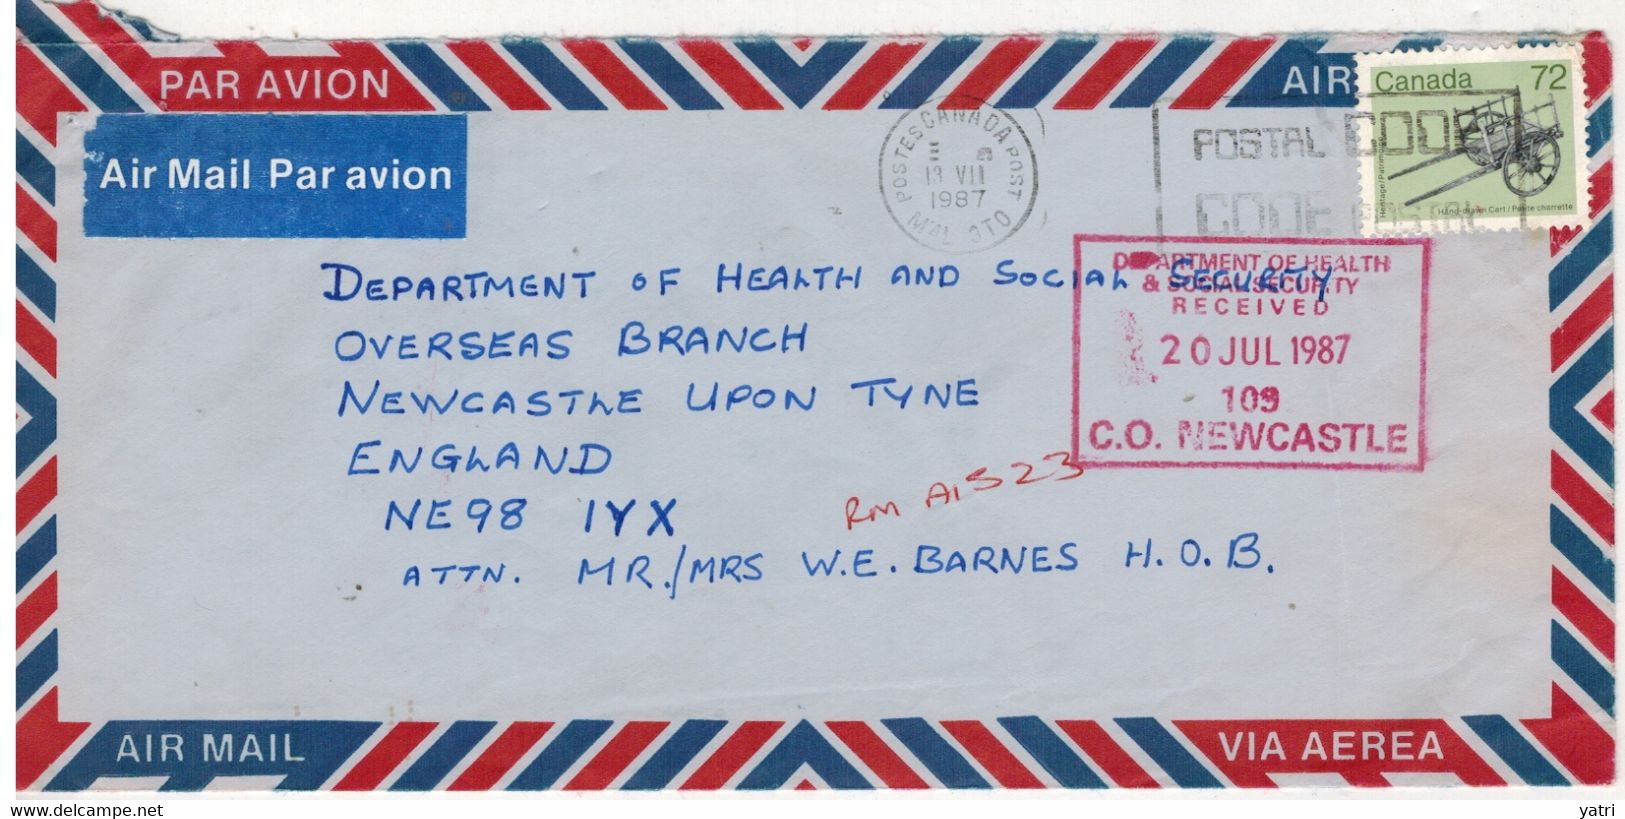 PAR AVION
AIR
Canada 72
Heritage/Patrimoine
Hand-drawn Cart / Petite charrette
Air Mail Par avion
POSTES CANADA POST
13 VII
1987
M'AL 3T0
POSTAL CODE
CODE POSTAL
DEPARTMENT OF HEALTH
& SOCIAL SECURITY
RECEIVED
20 JUL 1987
109
C.O. NEWCASTLE
DEPARTMENT OF HEALTH AND SOCIAL SECURITY
OVERSEAS BRANCH
NEWCASTLE UPON TYNE
ENGLAND
NE98 1YX
RM A1523
ATTN. MR./MRS W.E. BARNES H.O.B.
AIR MAIL
VIA AEREA
www.delcampe.net
yatri